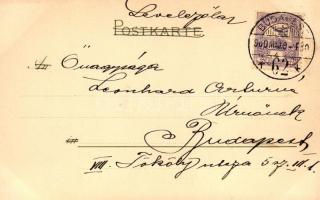 Levelezőlap
POSTKARTE
BUDAPEST
62
An Őnagysága
Leonhard Arthurné
Úrnőnek
in Budapest
VIII. Tököly utcza 5 sz. III. 1.